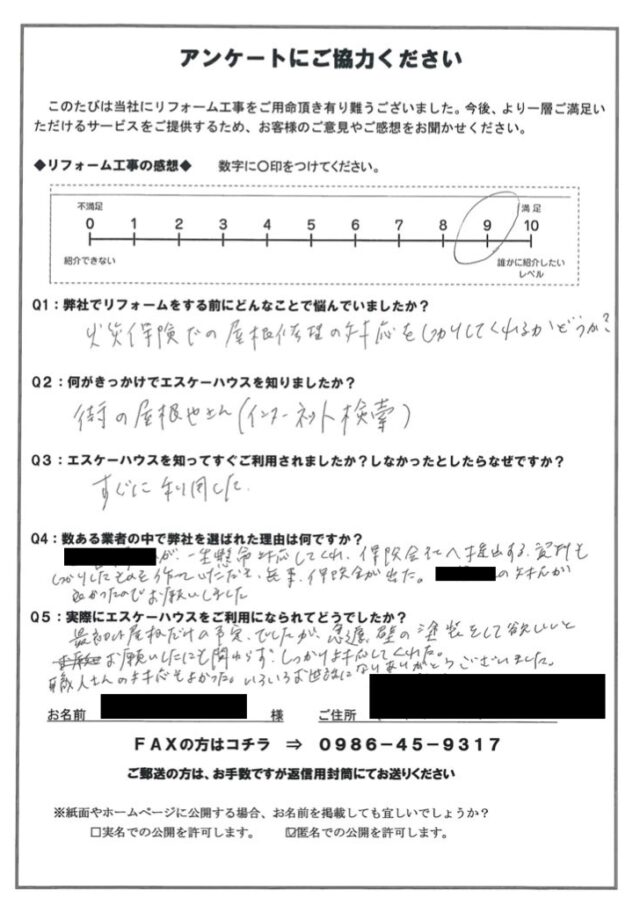 アンケートにご協力ください
このたびは当社にリフォーム工事をご用命頂き有り難うございました。今後、より一層ご満足い
ただけるサービスをご提供するため、お客様のご意見やご感想をお聞かせください。
◆リフォーム工事の感想◆　数字に〇印をつけてください。
不満足 満足
0 1 2 3 4 5 6 7 8 9 10
紹介できない 誰かに紹介したい
レベル
Q1：弊社でリフォームをする前にどんなことで悩んでいましたか？
火災保険での屋根修理の対応をしっかりしてくれるかどうか？
Q2：何がきっかけでエスケーハウスを知りましたか？
街の屋根やさん(インターネット検索)
Q3：エスケーハウスを知ってすぐご利用されましたか？しなかったとしたらなぜですか？
すぐに利用した.
Q4：数ある業者の中で弊社を選ばれた理由は何ですか？
が、一生懸命対応してくれ、保険会社へ提出する資料も
しっかりしたものを作っていただき、無事、保険金が出た。 の対応が
良かったのでお願いしました
Q5：実際にエスケーハウスをご利用になられてどうでしたか？
最初は屋根だけの予定でしたが、急遽、壁の塗装をして欲しいと
お願いしたにも関わらず、しっかり対応してくれた。
職人さんの対応もよかった。いろいろお世話になりありがとうございました。
お名前 様 ご住所
FAXの方はコチラ ⇒ 0986-45-9317
ご郵送の方は、お手数ですが返信用封筒にてお送りください
※紙面やホームページに公開する場合、お名前を掲載しても宜しいでしょうか？
□実名での公開を許可します。 ☑匿名での公開を許可します。